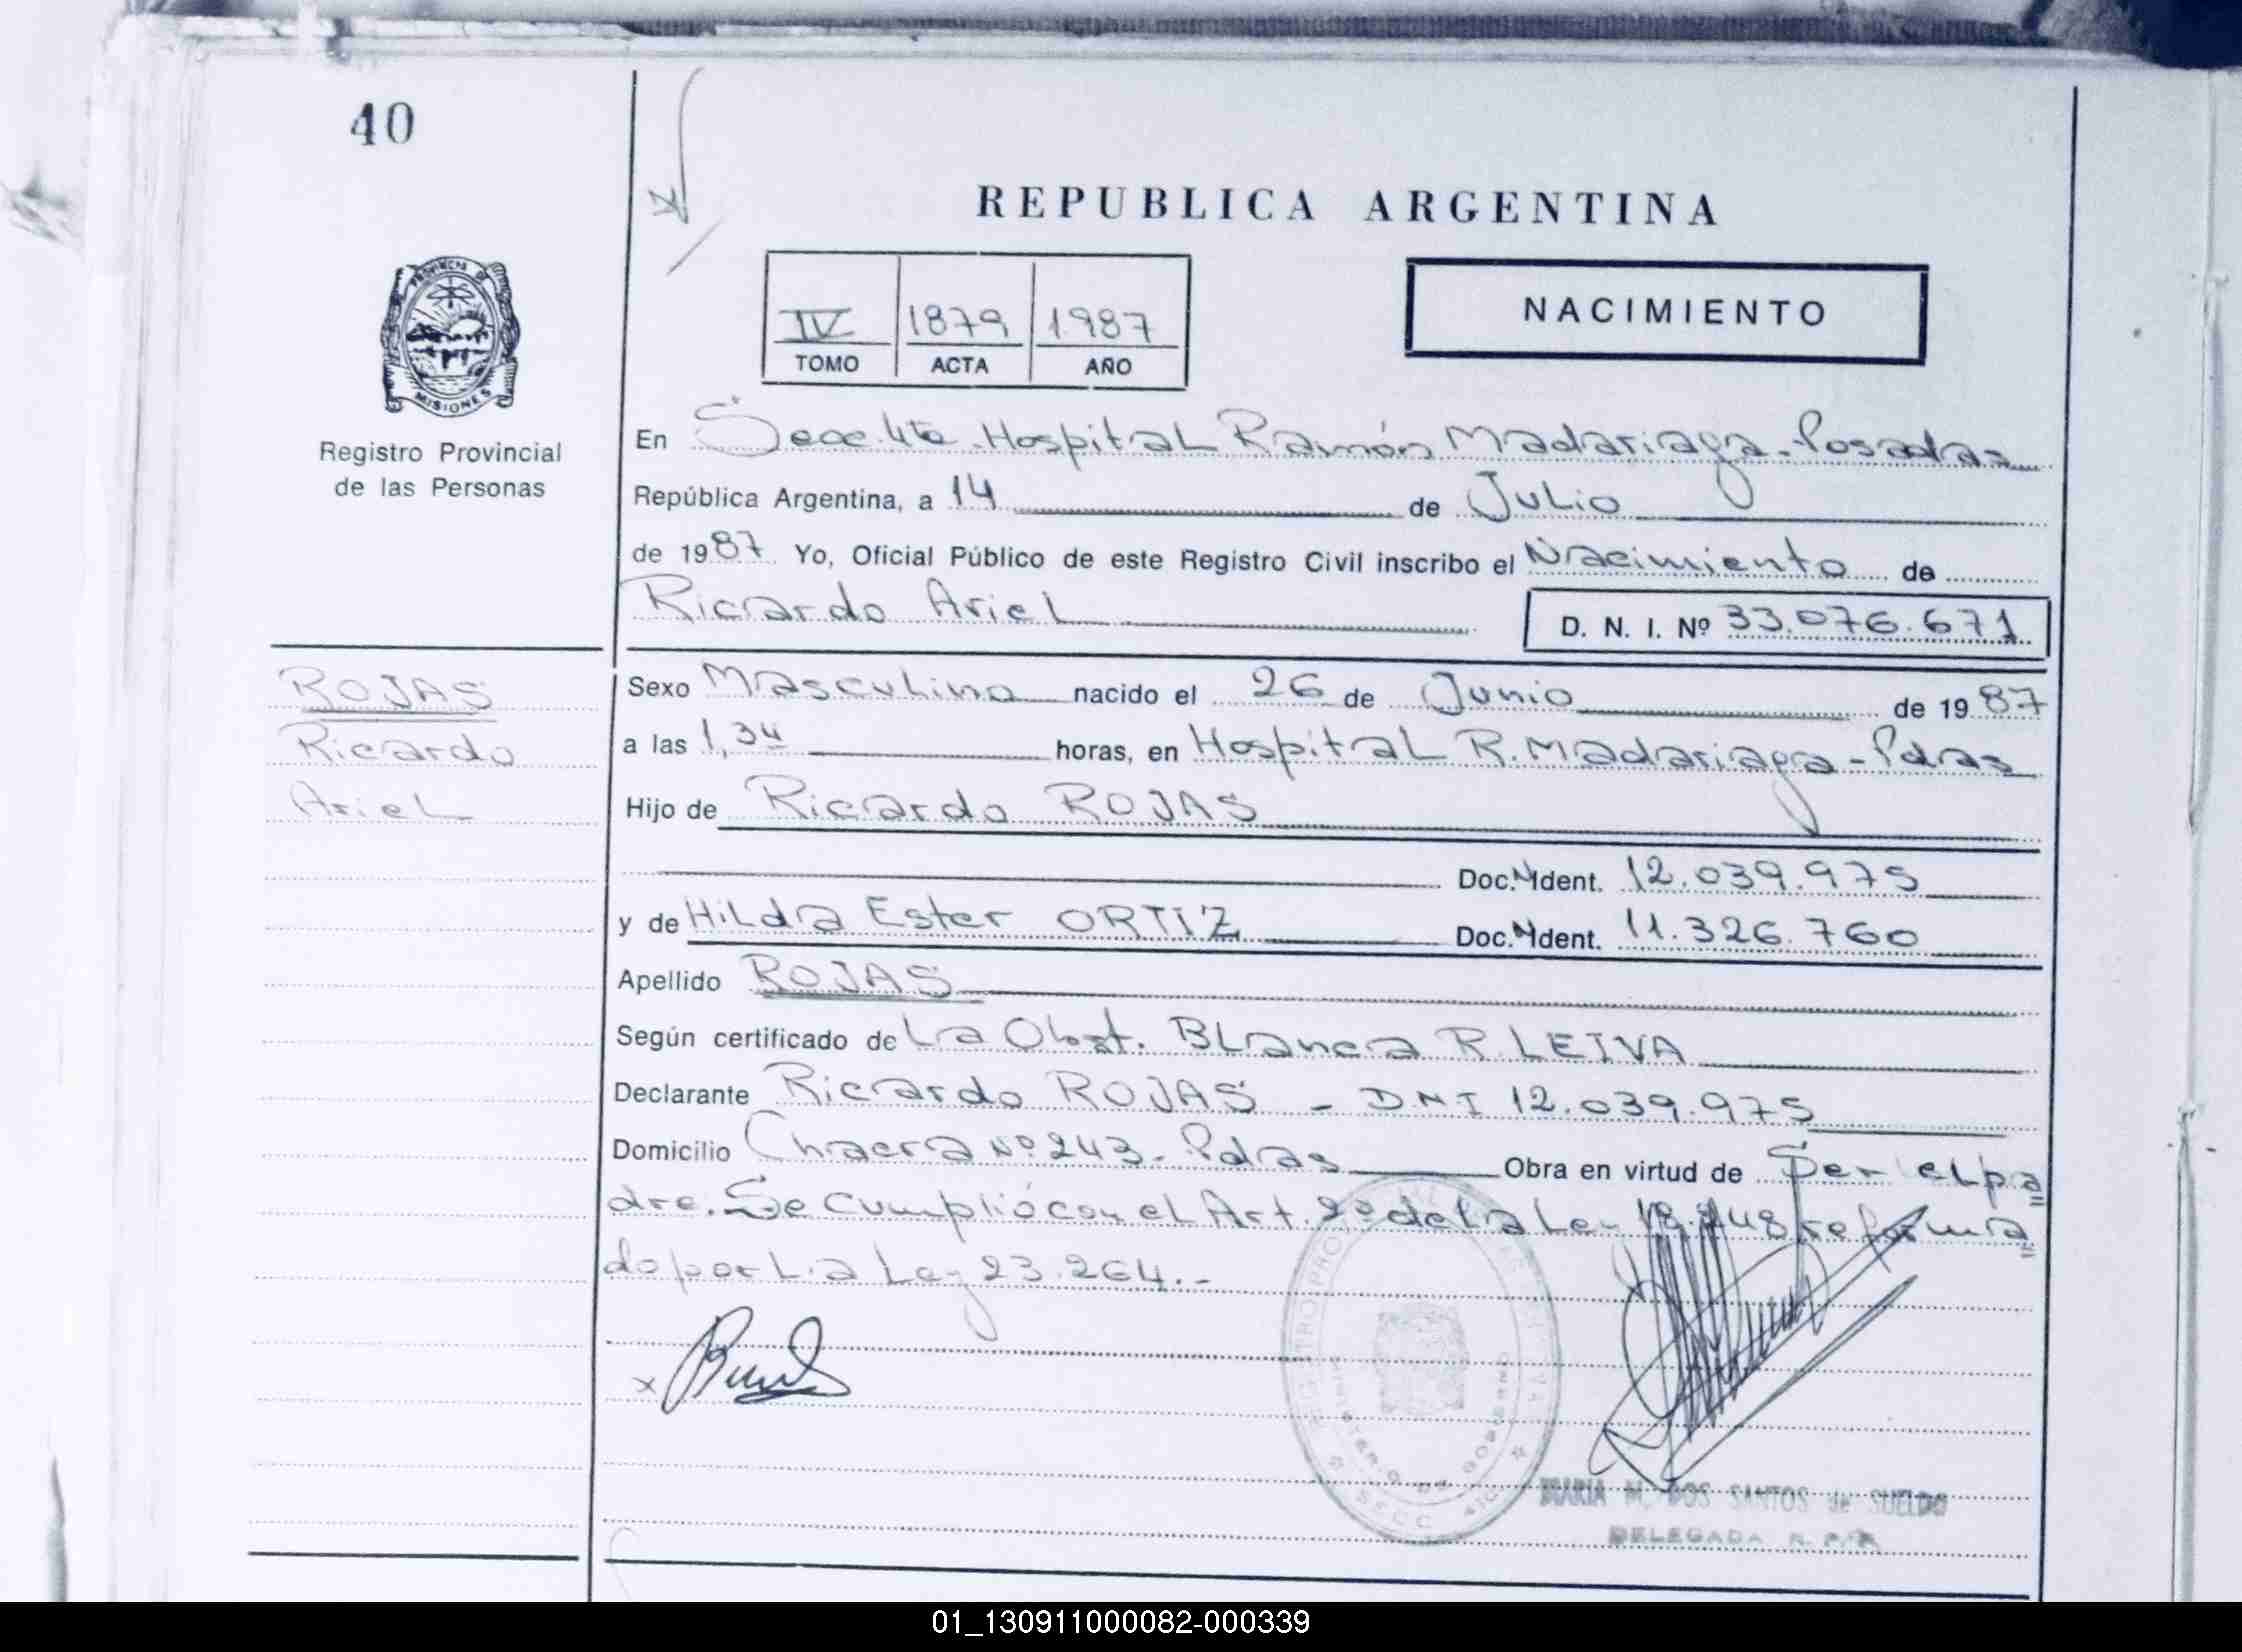 40
REPUBLICA ARGENTINA
NACIMIENTO
IV 1879 1987
TOMO ACTA AÑO
PROVINCIA DE
MISIONES
Registro Provincial
de las Personas
En Secc. 4ta. Hospital Ramón Madariaga - Posadas
República Argentina, a 14 de Julio
de 1987. Yo, Oficial Público de este Registro Civil inscribo el Nacimiento de
Ricardo Ariel D. N. I. Nº 33.076.671
ROJAS
Ricardo
Ariel
Sexo Masculino nacido el 26 de Junio de 1987
a las 1,34 horas, en Hospital R. Madariaga - Pdas
Hijo de Ricardo ROJAS
Doc. Ident. 12.039.975
y de Hilda Ester ORTIZ Doc. Ident. 11.326.760
Apellido ROJAS
Según certificado de La Obst. Blanca R. LEIVA
Declarante Ricardo ROJAS - DNI 12.039.975
Domicilio Chacra Nº 243 - Pdas Obra en virtud de Ser el pa
dre. Se cumplió con el Art. 2º de la Ley 18.248 reforma
do por La Ley 23.264.-
x
MINISTERIO DE GOBIERNO
SECC
MARIA M. DOS SANTOS de SUELDO
DELEGADA R. P. P.
01_130911000082-000339